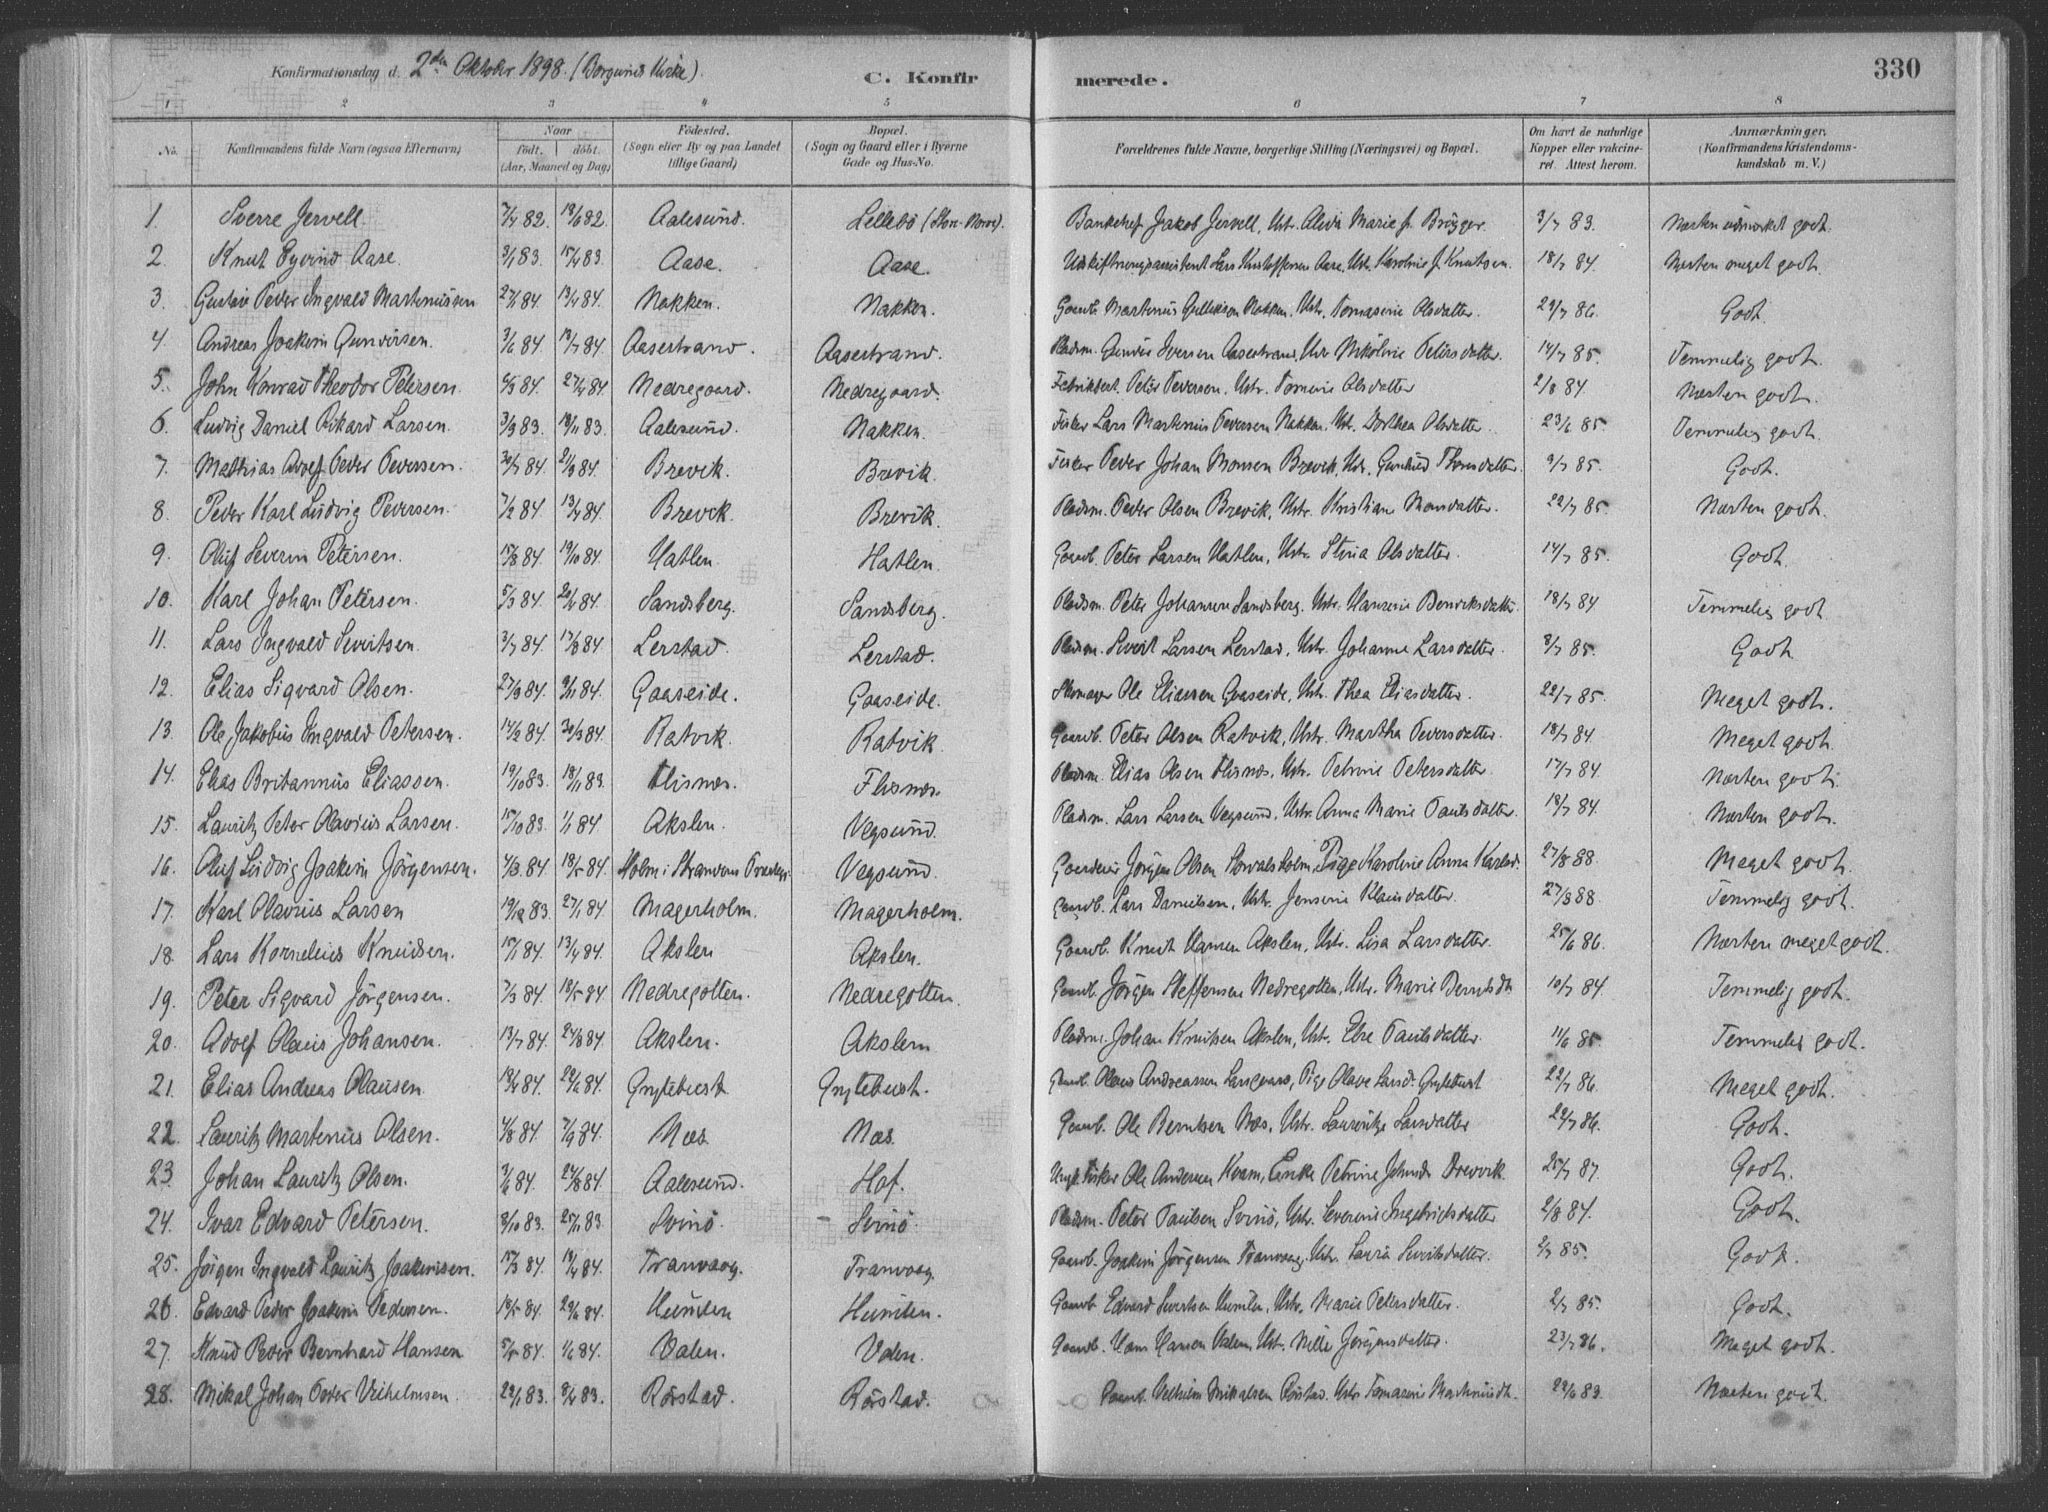 Konfirmationsdag d. 2den Oktober 1898. (Borgunds Kirke). C. Konfir merede. 330
1 2 3 4 5 6 7 8
No. Konfirmandens fulde Navn (ogsaa Efternavn) Naar født, døbt. (Aar, Maaned og Dag) Fødested. (Sogn eller By og paa Landet tillige Gaard) Bopæl. (Sogn og Gaard eller i Byerne Gade og Hus-No. Forældrenes fulde Navne, borgerlige Stilling (Næringsvei) og Bopæl. Om havt de naturlige Kopper eller vakcineret. Attest herom. Anmærkninger. (Konfirmandens Kristendomskundskab m. V.)
1. Sverre Jervell 82 82. Aalesund. Lillebö Bankchef Jakob Jervell, Ustr. Alida Marie f. Brügger. 3/7 83. Næsten udmærket godt.
2. Knut Eyvind Aase. 3/1 83. 15/4 83. Aase. Aase. Lars Kristoffersen Aase, Ustr. Karoline f. Knutsen. 18/7 84. Næsten meget godt.
3. Gustav Peder Ingvald Martinussen 27/1 84. 13/4 84. Nakken. Nakken. Gaardb. Martinus Gulliksen Nakken, Ustr. Tomasine Olsdatter. 29/7 86. Godt.
4. Andreas Joakim Gundersen. 3/6 84. 13/7 84. Aasestrand. Aasestrand. Pladsm. Gunder Iversen Aasestrand, Ustr. Nikoline Petersdatter. 14/7 85. Temmelig godt.
5. John Konrad Theodor Petersen. 6/3 84. 27/4 84. Nedregaard. Nedregaard. Peter Pedersen, Ustr. Tomine Olsdatter 2/8 84. Næsten godt.
6. Ludvig Daniel Rikard Larsen. 3/9 83. 18/11 83. Aalesund. Nakken. Fisker Lars Martinus Pedersen Nakken, Ustr. Dorthea Olsdatter. 23/6 85. Temmelig godt.
7. Mathias Adolf Peder Pedersen. 30/7 84. 21/9 84. Brevik. Brevik. Fisker Peder Johan Monsen Brevik, Ustr. Gunhild Thorsdatter. 9/7 85. Godt.
8. Peder Karl Ludvig Pedersen. 7/2 84. 13/4 84. Brevik. Brevik. Pladsm. Peder Olsen Brevik, Ustr. Kristiane Monsdatter. 22/7 85. Næsten godt.
9. Oluf Severin Petersen. 15/8 84. 19/10 84. Hatlen. Hatlen. Gaardb. Peter Larsen Hatlen, Ustr. Stina Olsdatter. 14/7 85. Godt.
10. Karl Johan Petersen. 5/3 84. 20/4 84. Sandsberg. Sandsberg. Pladsm. Peter Johansen Sandsberg. Ustr. Hansine 18/7 84. Temmelig godt.
11. Lars Ingvald Sivertsen. 3/7 84. 17/8 84. Lerstad. Lerstad. Pladsm. Sivert Larsen Lerstad, Ustr. Johanne Larsdatter. 8/7 85. Godt.
12. Elias Sigvard Olsen. 27/9 84. 9/11 84. Gaaseide. Gaaseide. Ole Eliassen Gaaseide, Ustr. Thea Eliasdatter. 22/7 85. Meget godt.
13. Ole Jakobus Ingvald Petersen. 14/2 84. 30/3 84. Ratvik. Ratvik. Gaardb. Peter Olsen Ratvik, Ustr. Martha Pedersdatter. 18/7 84. Meget godt.
14. Elias Britannus Eliassen. 19/10 83. 18/11 83. Flisnæs. Flisnæs. Pladsm. Elias Olsen Flisnæs, Ustr. Petrine Petersdatter. 17/7 84. Næsten godt.
15. Lauritz Peter Olavius Larsen. 15/10 83. 1/1 84. Akslen. Vegsund. Pladsm. Lars Larsen Vegsund, Ustr. Anna Marie Paulsdatter. 18/7 84. Næsten godt.
16. Oluf Ludvig Joakim Jörgensen. 4/3 84. 18/5 84. Holm i Strandens Vegsund. Jörgen Olsen Holm, Pige Karoline Anna Karlsd. 27/8 88. Meget godt.
17. Karl Olavius Larsen 19/12 83. 27/1 84. Magerholm. Magerholm. Gaardb. Lars Danielsen, Ustr. Jensine Klausdatter. 27/8 88. Temmelig godt.
18. Lars Kornelius Knudsen. 15/1 84. 13/4 84. Akslen Akslen. Gaardb. Knut Hansen Akslen, Ustr. Lisa Larsdatter. 25/6 86. Næsten meget godt.
19. Peter Sigvard Jörgensen. 7/3 84. 18/5 84. Nedregotten. Nedregotten. Gaardb. Jörgen Steffensen Nedregotten, Ustr. Marie 10/7 84. Temmelig godt.
20. Adolf Olaus Johansen. 13/7 84. 24/8 84. Akslen. Akslen Pladsm. Johan Knutsen Akslen, Ustr. Else Paulsdatter. 11/6 85. Temmelig godt.
21. Elias Andreas Olausen. 19/4 84. 22/6 84. Gryteбust Grytebust. Gaardb. Olaus Andreassen Langvass, Pige Olave Larsd. Grytebust 22/7 86. Meget godt.
22. Lauritz Martinus Olsen. 4/8 84. 7/9 84. Næs. Næs. Gaardb. Ole Berntsen Næs, Ustr. Lauritze Larsdatter 29/7 86. Godt.
23. Johan Lauritz Olsen. 3/6 84. 24/8 84. Aalesund. Hof. Ungk. Fisker Ole Andersen Kvam, Enke Petrine Johnsd. Brevik. 25/7 87. Godt.
24. Ivar Edvard Petersen. 8/10 83. 25/11 83. Svinö. Svinö. Pladsm. Peter Paulsen Svinö, Ustr. Severine Ingebrigtsdatter 2/8 84. Godt.
25. Jörgen Ingvald Lauritz Joakimsen. 15/3 84. 14/4 84. Tranvaag. Tranvaag. Gaardb. Joakim Jörgensen Tranvaag, Ustr. Laura Sivertsdatter. 2/7 85. Godt.
26. Edvard Peder Joakim Pedersen. 18/5 84. 29/6 84. Humlen Humlen. Gaardb. Edvard Sivertsen Humlen, Ustr. Marie Petersdatter. 2/7 85. Godt.
27. Knud Peder Bernhard Hansen 5/5 84. 1/6 84. Valen. Valen. Gaardb. Hans Hansen Valen, Ustr. Nille Jörgensdatter. 23/7 86. Meget godt.
28. Mikal Johan Peder Vilhelmsen. 22/1 83. 8/4 83. Rörstad. Rörstad. Gaardb. Vilhelm Mikalsen Rörstad. Ustr. Tomasine Martinusdt. 29/6 83. Næsten godt.